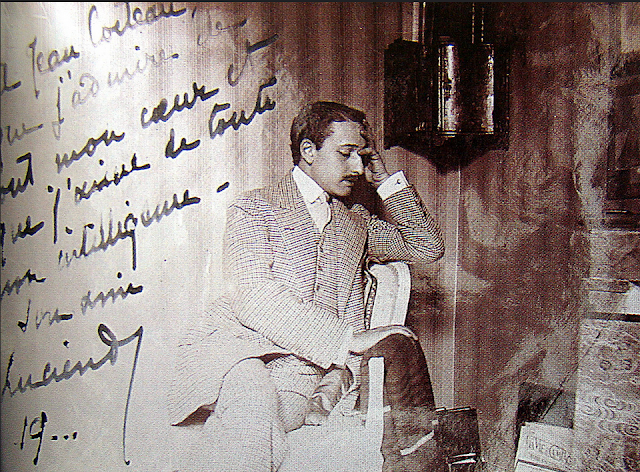 A Jean Cocteau,
que j'admire de
tout mon cœur et
que j'aime de toute
mon intelligence –
Son ami
Lucien D
19...